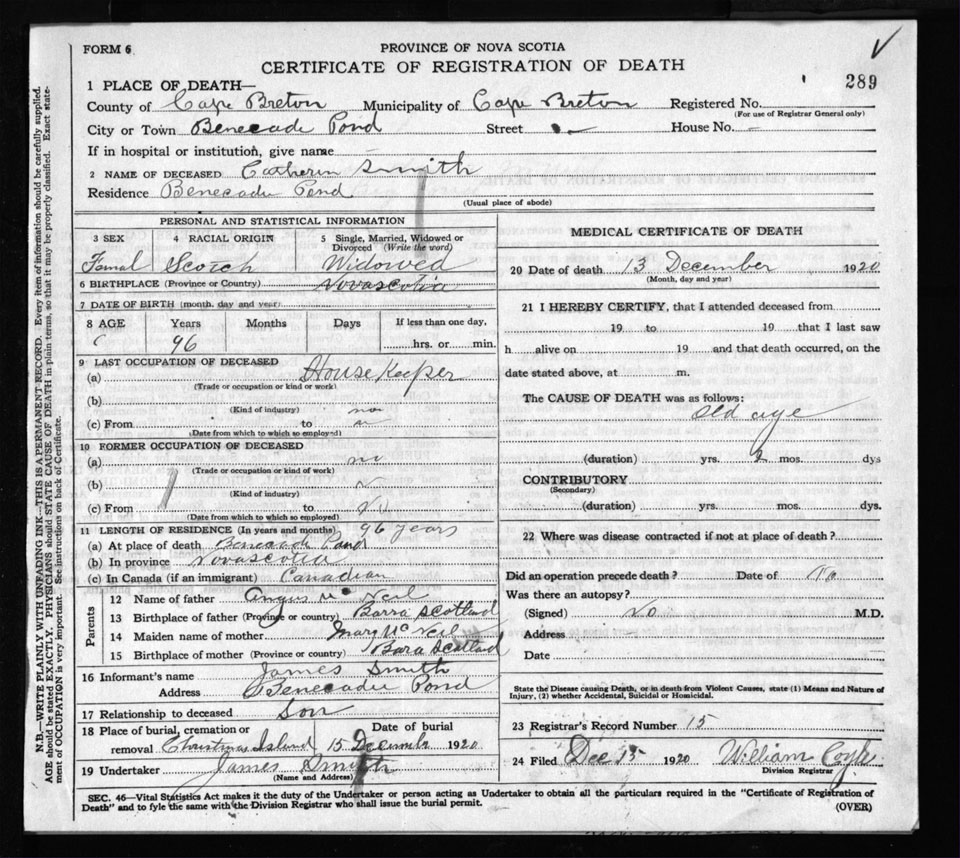 FORM 6
PROVINCE OF NOVA SCOTIA
CERTIFICATE OF REGISTRATION OF DEATH
289
1 PLACE OF DEATH—
County of Cape Breton Municipality of Cape Breton Registered No.
(For use of Registrar General only)
City or Town Benecade Pond Street — House No. -
If in hospital or institution, give name
2 NAME OF DECEASED Catherin Smith
Residence Benecadu Pond
(Usual place of abode)
PERSONAL AND STATISTICAL INFORMATION
3 SEX 4 RACIAL ORIGIN 5 Single, Married, Widowed or Divorced (Write the word)
Femal Scotch Widowed
6 BIRTHPLACE (Province or Country) Novascotia
7 DATE OF BIRTH (month, day and year)
8 AGE Years Months Days If less than one day,
96 hrs. or min.
9 LAST OCCUPATION OF DECEASED
(a) House Keeper
(Trade or occupation or kind of work)
(b)
(Kind of industry)
(c) From to
(Date from which to which so employed)
10 FORMER OCCUPATION OF DECEASED
(a) no
(Trade or occupation or kind of work)
(b)
(Kind of industry)
(c) From to
(Date from which to which so employed)
11 LENGTH OF RESIDENCE (In years and months) 96 years
(a) At place of death Benecade Pond
(b) In province Novascotia
(c) In Canada (if an immigrant) Canadian
Parents
12 Name of father Angus Mc Neil
13 Birthplace of father (Province or country) Barra Scotland
14 Maiden name of mother Mary Mc Neil
15 Birthplace of mother (Province or country) Bara Scotland
16 Informant's name James Smith
Address Benecadu Pond
17 Relationship to deceased Son
18 Place of burial, cremation or removal Christmas Island Date of burial 15 December 1920
19 Undertaker James Smith
(Name and Address)
MEDICAL CERTIFICATE OF DEATH
20 Date of death 13 December 1920
(Month, day and year)
21 I HEREBY CERTIFY, that I attended deceased from
19 to 19 that I last saw
h alive on 19 and that death occurred, on the
date stated above, at m.
The CAUSE OF DEATH was as follows:
old age
(duration) yrs. 2 mos. dys
CONTRIBUTORY
(Secondary)
(duration) yrs. mos. dys.
22 Where was disease contracted if not at place of death?
Did an operation precede death? Date of No
Was there an autopsy?
(Signed) No M.D.
Address
Date
State the Disease causing Death, or in death from Violent Causes, state (1) Means and Nature of
Injury, (2) whether Accidental, Suicidal or Homicidal.
23 Registrar's Record Number 15
24 Filed Dec 15 1920 William Coyle
Division Registrar
SEC. 46—Vital Statistics Act makes it the duty of the Undertaker or person acting as Undertaker to obtain all the particulars required in the "Certificate of Registration of
Death" and to fyle the same with the Division Registrar who shall issue the burial permit.
(OVER)
N.B.—WRITE PLAINLY WITH UNFADING INK—THIS IS A PERMANENT RECORD. Every item of information should be carefully supplied.
AGE should be stated EXACTLY. PHYSICIANS should STATE CAUSE OF DEATH in plain terms, so that it may be properly classified. Exact state-
ment of OCCUPATION is very important. See instructions on back of Certificate.